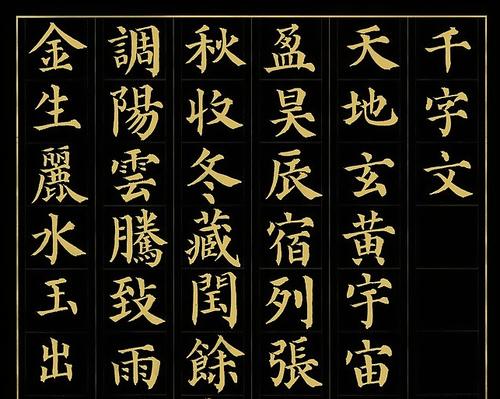 千字文
天地玄黃宇宙
盈昃辰宿列張
秋收冬藏閏餘
調陽雲騰致雨
金生麗水玉出